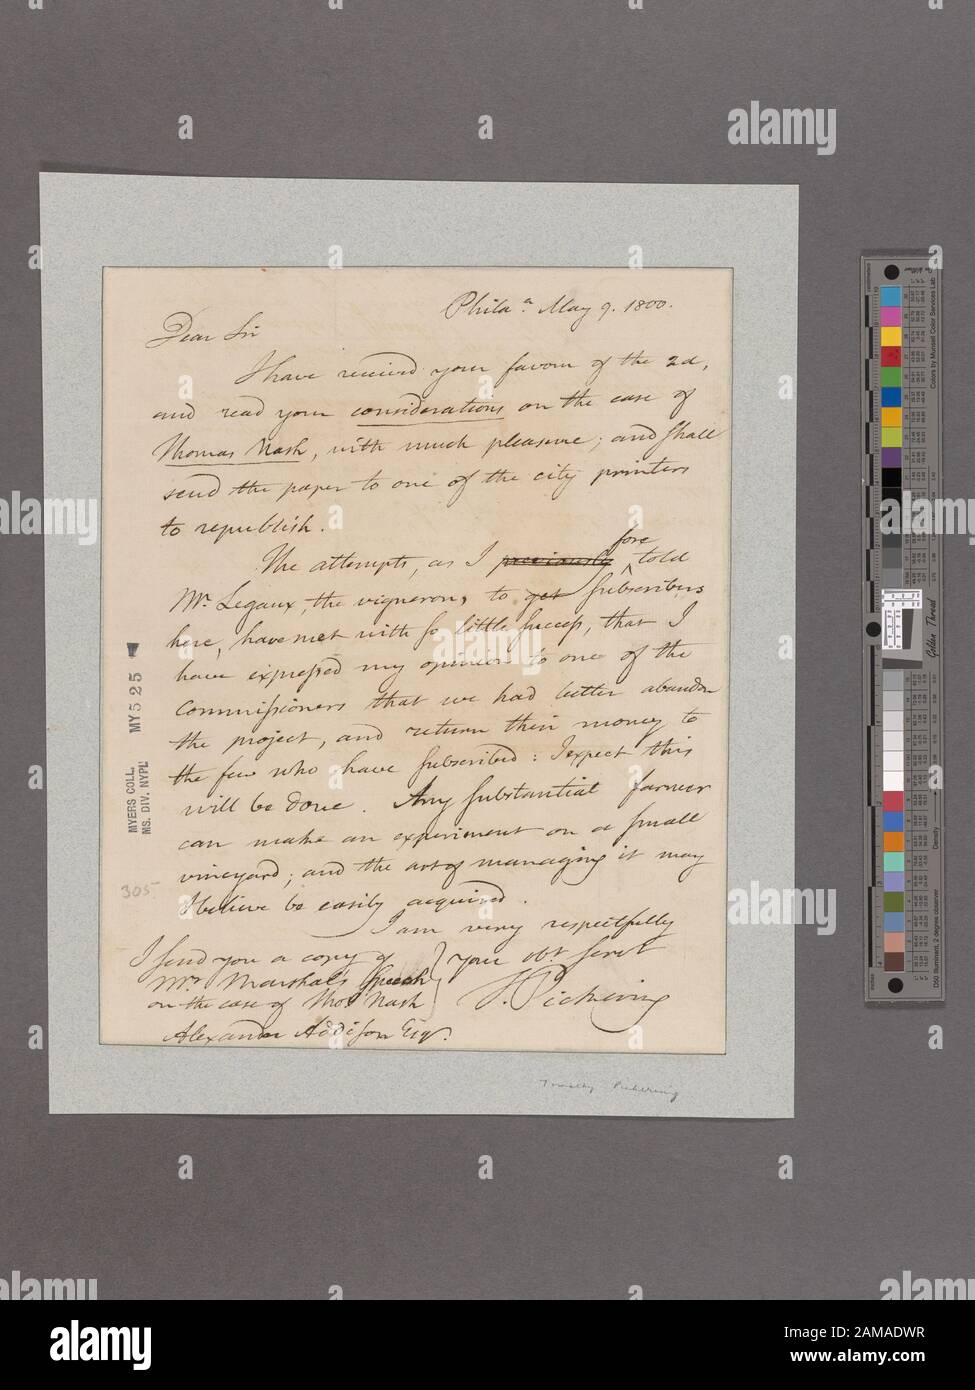 Philaᵃ May 9. 1800.
Dear Sir
I have received your favour of the 2d,
and read your considerations on the case of
Thomas Nash, with much pleasure; and shall
send the paper to one of the city printers
to republish.
The attempts, as I previously fore told
Mr. Legaux, the vigneron, to get subscribers
here, have met with so little success, that I
have expressed my opinion to one of the
commissioners that we had better abandon
the project, and return their money to
the few who have subscribed: I expect this
will be done. Any substantial farmer
can make an experiment on a small
vineyard; and the art of managing it may
I believe be easily acquired.
I am very respectfully
your obt. servt
T. Pickering
I send you a copy of
Mr. Marshal's speech
on the case of Thos Nash
Alexander Addison Esqr.
MY 5 25
MYERS COLL.
MS. DIV. NYPL
305
Timothy Pickering
Golden Thread
Colors by Munsell Color Services Lab
Density
D50 Illuminant, 2 degree observer
a
alamy
alamy
Image ID: 2AMADWR
www.alamy.com